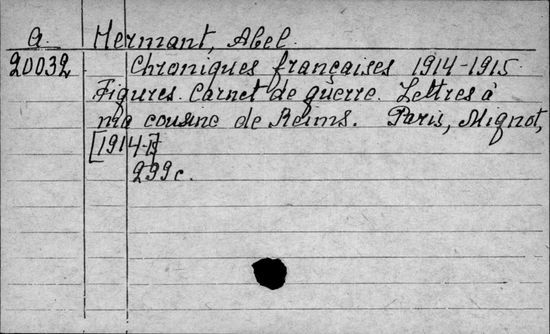 a. Hermant, Abel.
20032 Chroniques françaises 1914-1915.
Figures. Carnet de guerre. Lettres à
ma cousine de Reims. Paris, Mignot,
[1914-15]
299c.